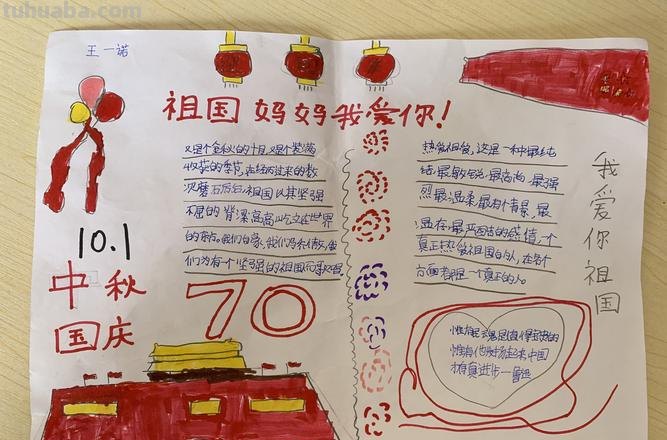 tuhuaba.com
王一诺
祖国妈妈我爱你！
又是个金秋的十月,又是个装满
收获的季节,在经历过来的数
次磨石后后祖国以其坚强
不屈的脊溪高高屹立在世界
的东方。我们自豪,我们
们为有个坚强的祖国而
热爱祖爱,这是一种最纯
结.最敏锐.最高尚.最强
烈.最温柔.最有情景.最
温存.最严酷的感情,个
真正热爱祖国的人,在各个
方面都是一个真正的人。
我爱你祖国
10.1
中秋
国庆
70
惟有民魂是值得宝贵的
惟有他发扬起来中国
才有真进步一鲁迅